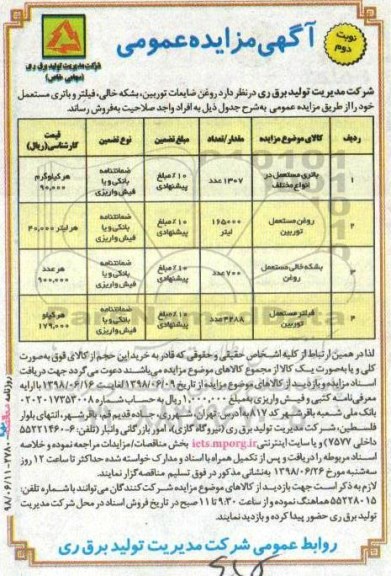 نوبت دوم
آگهی مزایده عمومی
شرکت مدیریت تولید برق ری
(سهامی خاص)
شرکت مدیریت تولید برق ری درنظر دارد روغن ضایعات توربین، بشکه خالی، فیلتر و باتری مستعمل
خود را از طریق مزایده عمومی به شرح جدول ذیل به افراد واجد صلاحیت به فروش رساند.
ردیف کالای موضوع مزایده مقدار/تعداد مبلغ تضمین نوع تضمین قیمت کارشناسی(ریال)
۱ باتری مستعمل در انواع مختلف ۱۳۰۷ عدد ۱۰٪ مبلغ پیشنهادی ضمانتنامه بانکی و یا فیش واریزی هر کیلوگرم ۹۰,۰۰۰
۲ روغن مستعمل توربین ۱۶۵۰۰۰ لیتر ۱۰٪ مبلغ پیشنهادی ضمانتنامه بانکی و یا فیش واریزی هر لیتر ۴۰,۰۰۰
۳ بشکه خالی مستعمل روغن ۷۰۰ عدد ۱۰٪ مبلغ پیشنهادی ضمانتنامه بانکی و یا فیش واریزی هر عدد ۹۰۰,۰۰۰
۴ فیلتر مستعمل توربین ۴۲۸۸ عدد ۱۰٪ مبلغ پیشنهادی ضمانتنامه بانکی و یا فیش واریزی هر کیلو ۱۷۹,۰۰۰
لذا در همین ارتباط از کلیه اشخاص حقیقی و حقوقی که قادر به خرید این حجم از کالای فوق به صورت
کلی و یا به صورت یک کالا از مجموع کالاهای موضوع مزایده می باشند دعوت می گردد جهت دریافت
اسناد مزایده و بازدید از کالاهای موضوع مزایده از تاریخ ۱۳۹۸/۰۶/۰۹ لغایت ۱۳۹۸/۰۶/۱۶ با ارایه
معرفی نامه کتبی و فیش واریزی به مبلغ ۱,۰۰۰,۰۰۰ ریال به حساب شماره ۰۲۰۲۰۱۷۳۵۳۰۰۸
بانک ملی شعبه باقرشهر کد ۸۱۷ به آدرس تهران، شهرری، جاده قدیم قم، باقرشهر، انتهای بلوار
فلسطین، شرکت مدیریت تولید برق ری (نیروگاه گازی)، امور بازرگانی و انبار (تلفن: ۶-۵۵۲۲۱۴۶۰
داخلی ۷۵۷۷) و یا سایت اینترنتی iets.mporg.ir بخش مناقصات/مزایدات مراجعه نموده و خلاصه
اسناد مربوطه را دریافت و پس از تکمیل همراه با اسناد و مدارک خواسته شده حداکثر تا ساعت ۱۲ روز
سه شنبه مورخ ۱۳۹۸/۰۶/۲۶ به نشانی مذکور در فوق تسلیم مناقصه گزار نمایند.
لازم به ذکر است جهت بازدید از کالاهای موضوع مزایده شرکت کنندگان می توانند با شماره تلفن:
۵۵۲۲۸۰۱۵ هماهنگ نموده و از ساعت ۹:۳۰ تا ۱۱ صبح در تاریخ فروش اسناد در محل شرکت مدیریت
تولید برق ری حضور پیدا کرده و بازدید نمایند.
روابط عمومی شرکت مدیریت تولید برق ری